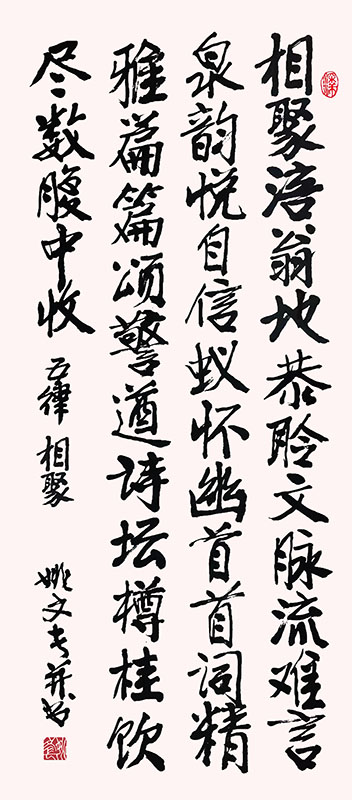 相聚涪翁地恭聆文脉流难言
泉韵悦自信蚁怀幽首首词精
雅篇篇颂警遒诗坛樽桂饮
尽数腹中收 五律 相聚 姚文并书